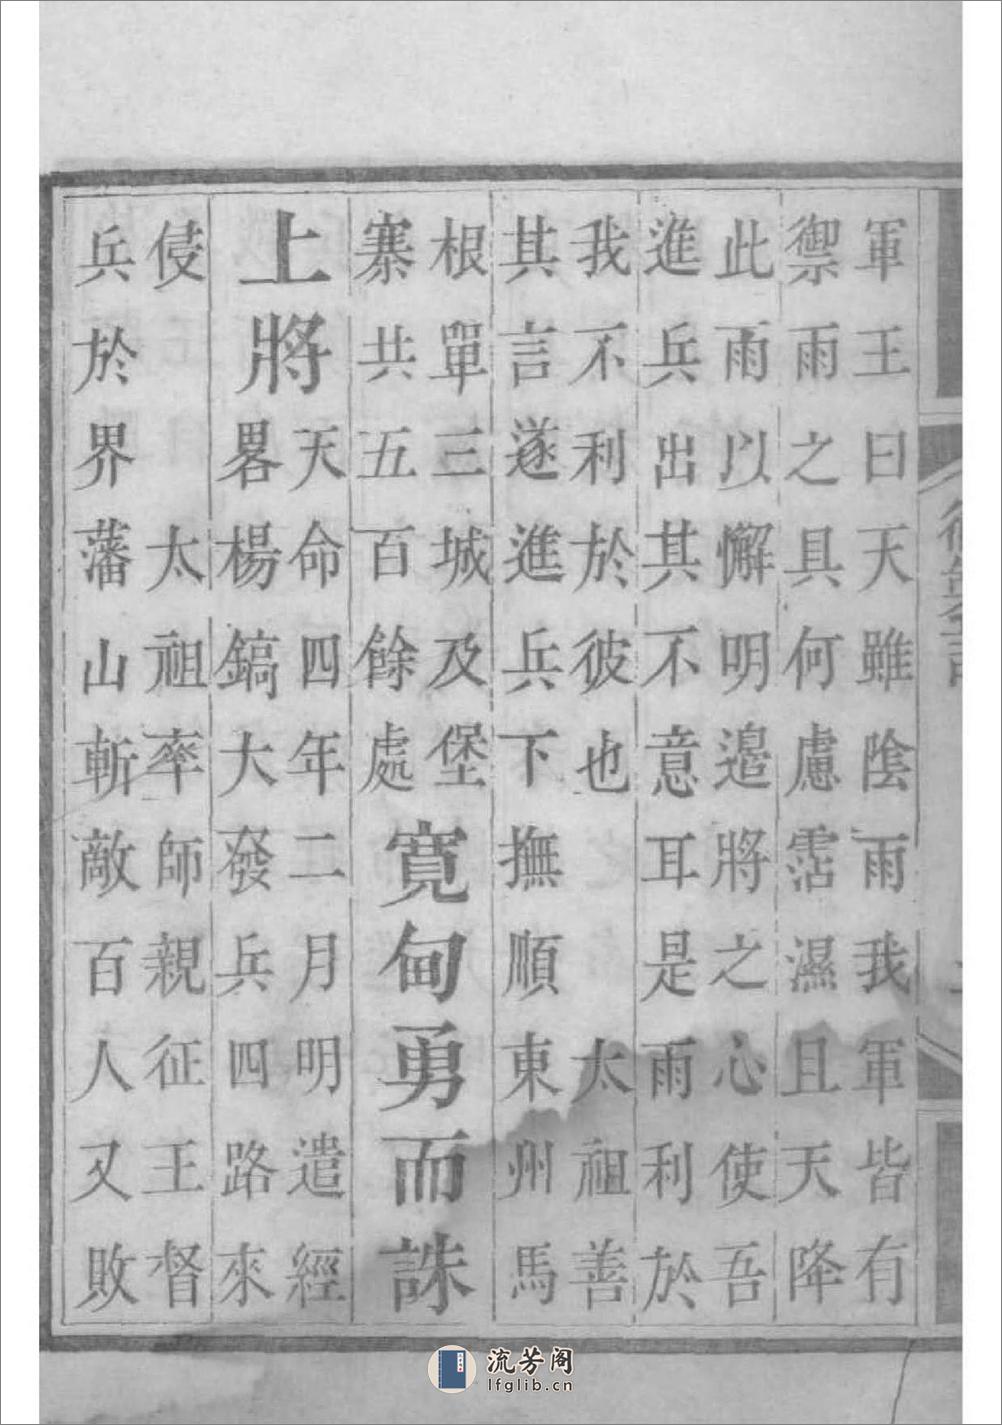 軍王曰天雖陰雨我軍皆有
禦雨之具何慮霑濕且天降
此雨以懈明邉將之心使吾
進兵出其不意耳是雨利於
我不利於彼也 太祖善
其言遂進兵下撫順東州馬
根單三城及堡
寨共五百餘處
寛甸勇而誅
上將
天命四年二月明遣經
畧楊鎬大發兵四路來
侵 太祖率師親征王督
兵於界藩山斬敵百人又敗
流芳阁
lfglib.cn